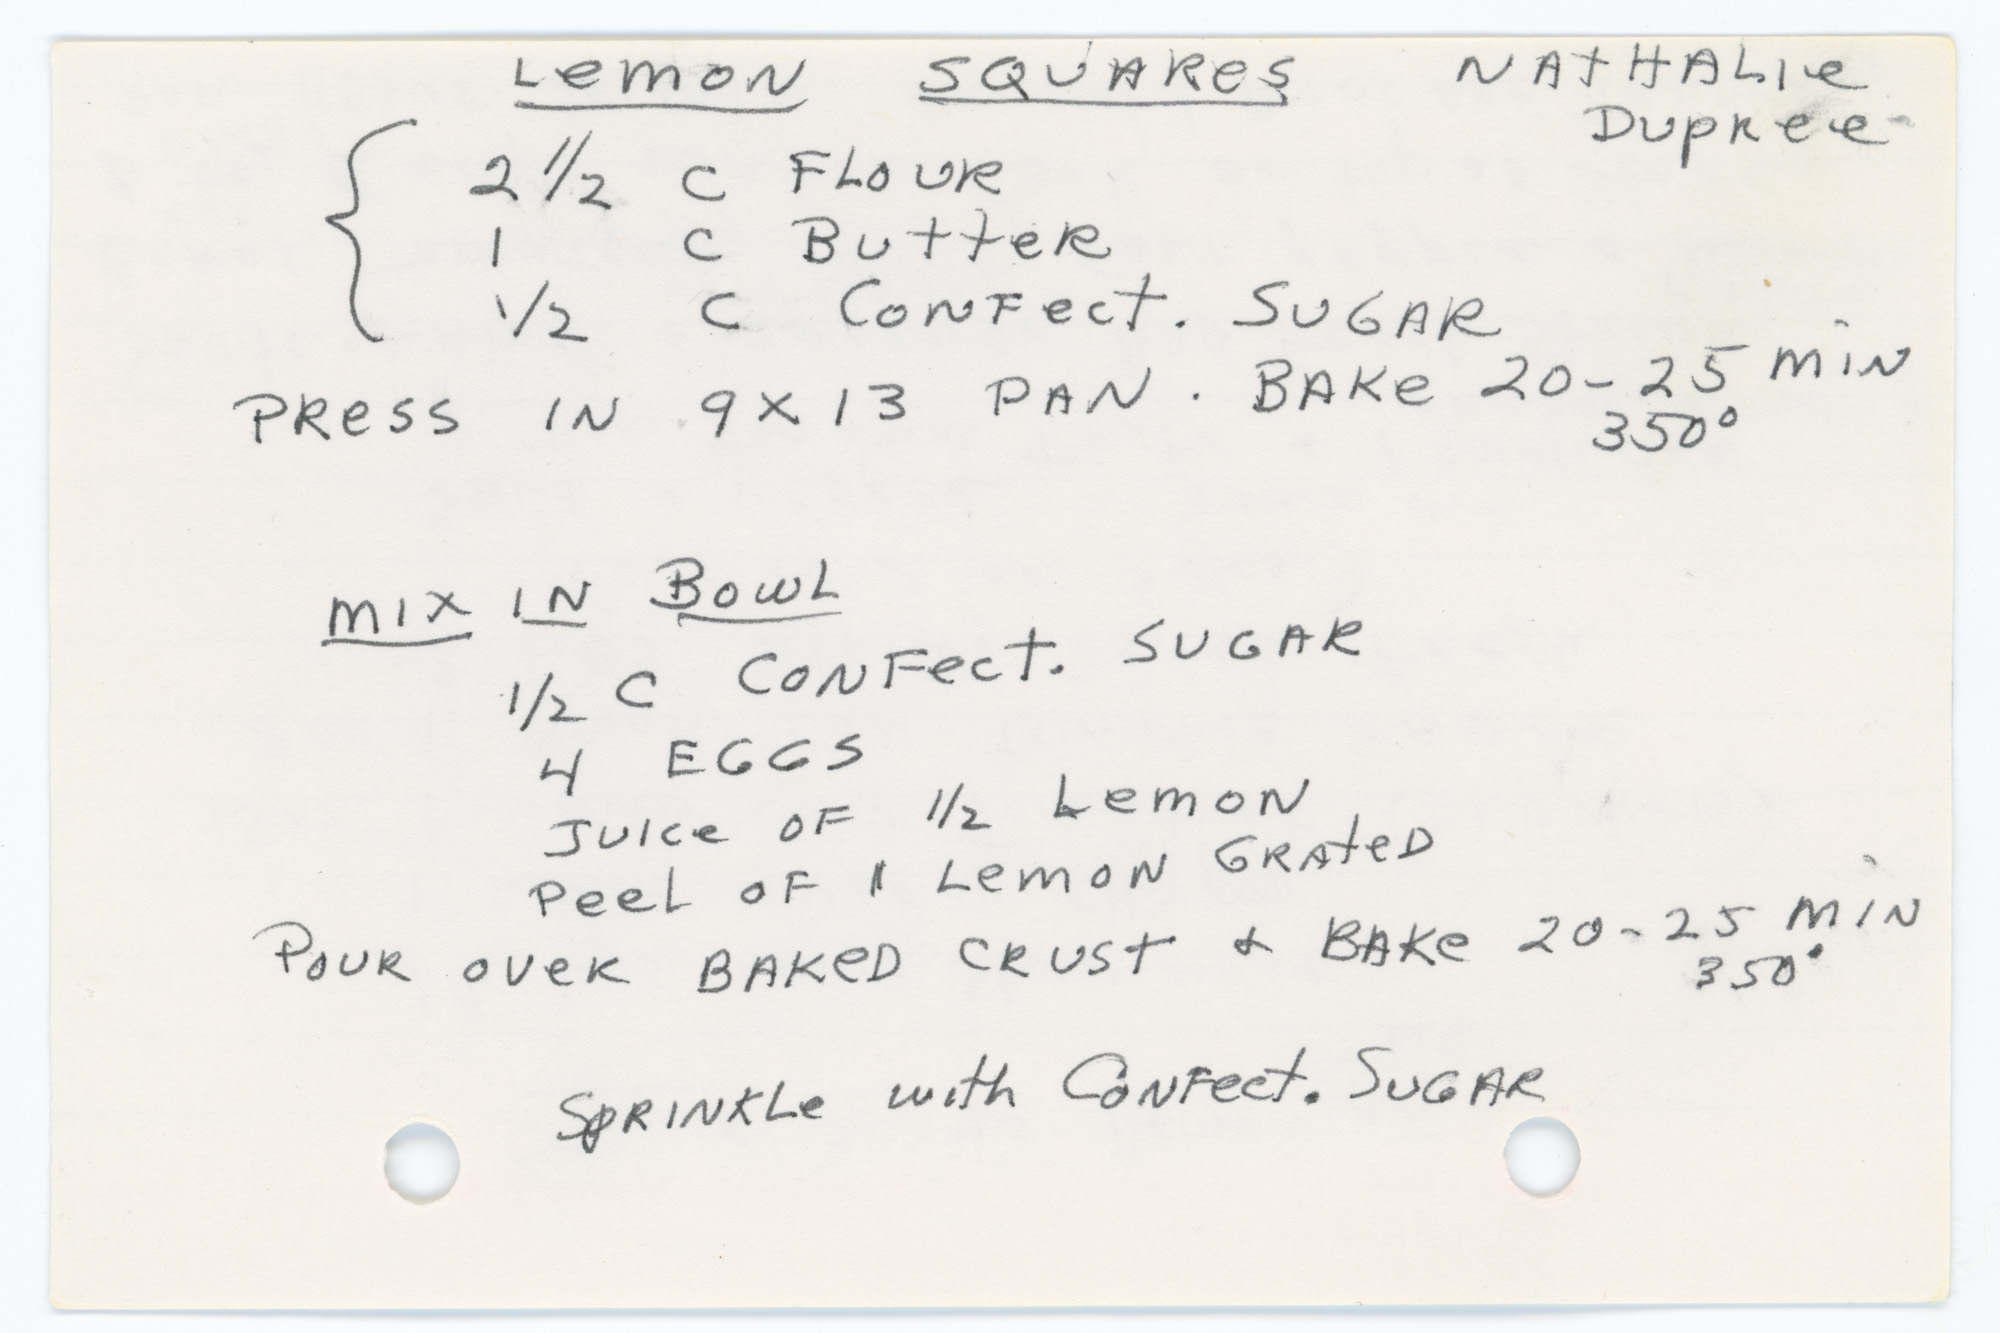 LEMON SQUARES NATHALIE
DUPREE
2 1/2 C FLOUR
1 C BUTTER
1/2 C CONFECT. SUGAR
PRESS IN 9 X 13 PAN. BAKE 20-25 MIN
350°
MIX IN BOWL
1/2 C CONFECT. SUGAR
4 EGGS
JUICE OF 1/2 LEMON
PEEL OF 1 LEMON GRATED
POUR OVER BAKED CRUST & BAKE 20-25 MIN
350°
SPRINKLE with CONFECT. SUGAR